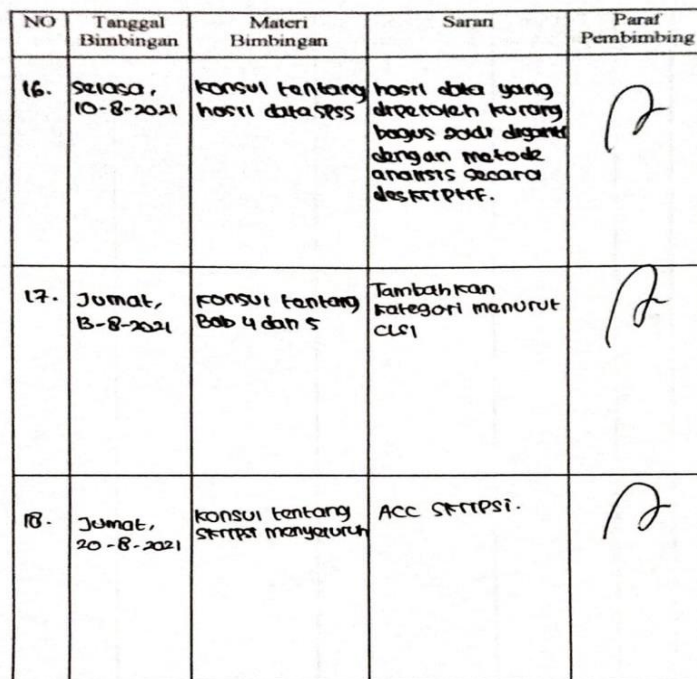 NO Tanggal Bimbingan Materi Bimbingan Saran Paraf Pembimbing
16. Selasa, 10-8-2021
konsul tentang
hasil data SPSS
hasil data yang
diperoleh kurang
bagus jadi diganti
dengan metode
analisis secara
deskriptif.
17. Jumat, 13-8-2021
konsul tentang
Bab 4 dan 5
Tambahkan
kategori menurut
CLSI
18. Jumat, 20-8-2021
konsul tentang
skripsi menyeluruh
ACC skripsi.